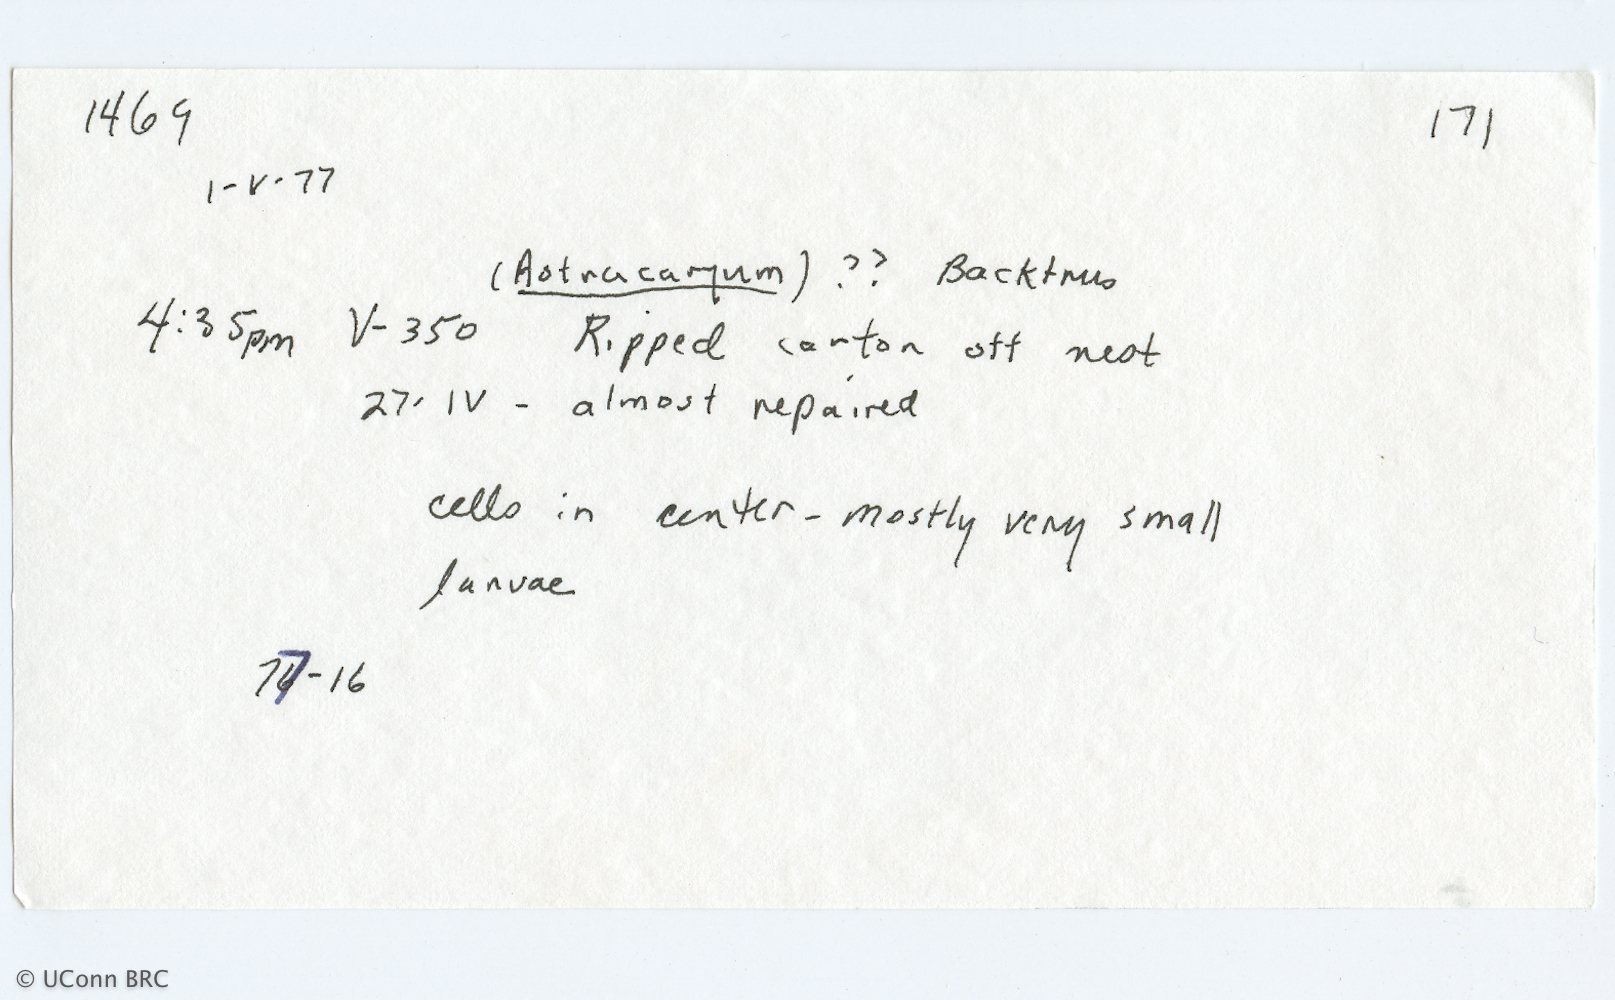 1469 171
1-V-77
(Astrocaryum) ?? Backtrus
4:35pm V-350 Ripped carton off nest
27. IV - almost repaired
cells in center - mostly very small
larvae
77-16
© UConn BRC